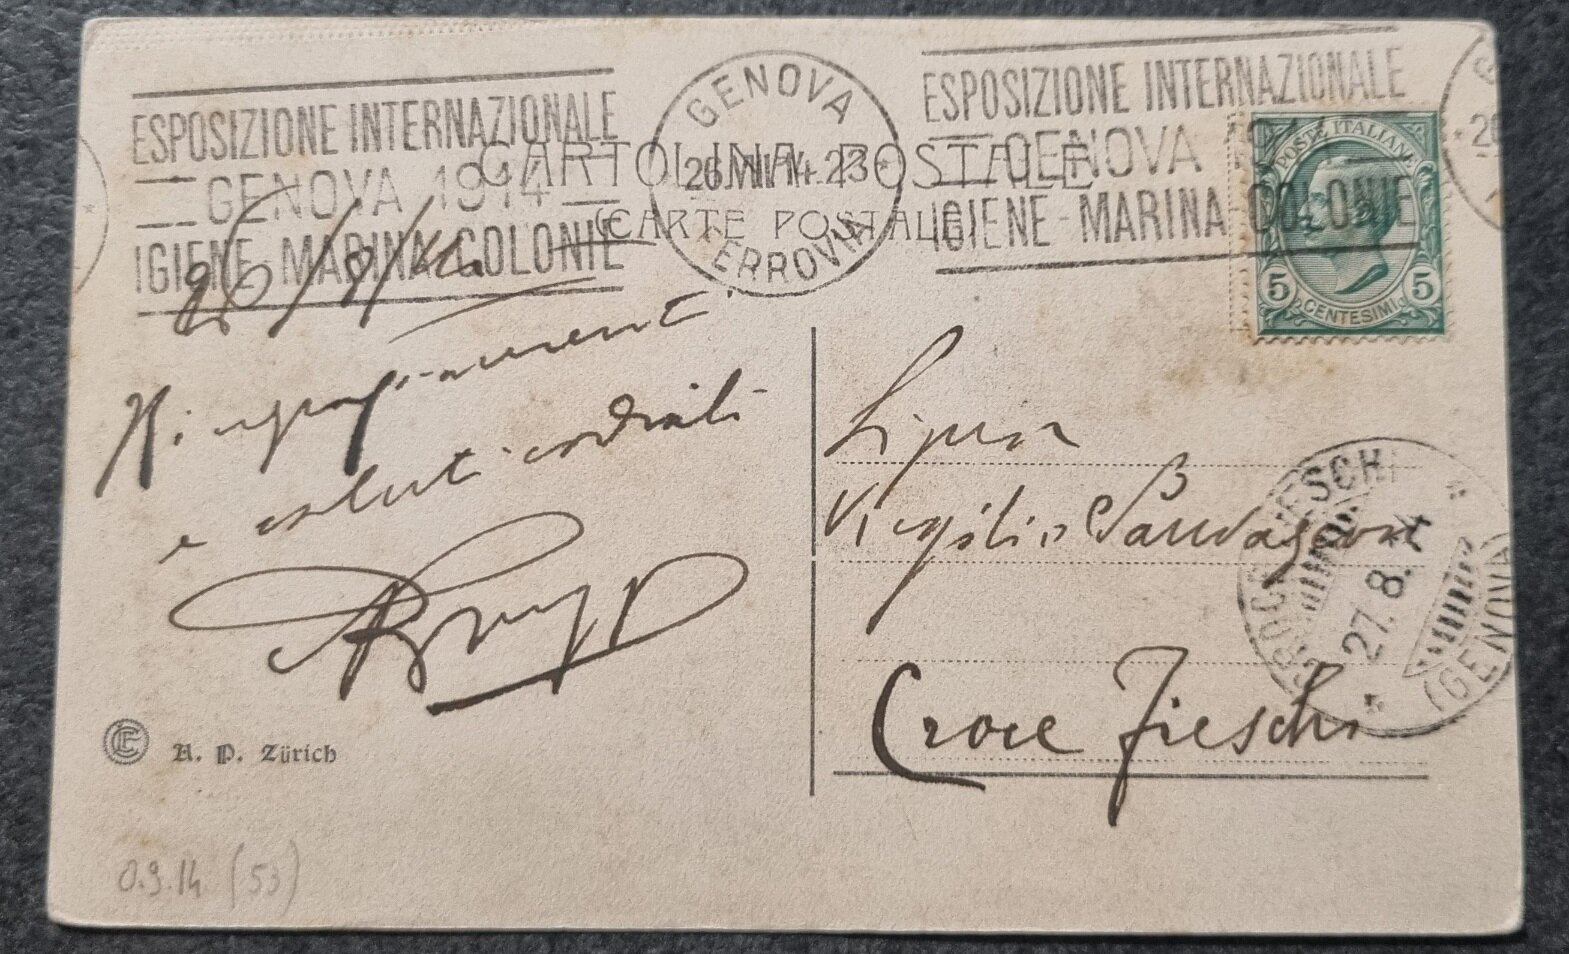 ESPOSIZIONE INTERNAZIONALE
GENOVA 1914
IGIENE - MARINA - COLONIE
GENOVA
26.VIII.14.23
FERROVIA
ESPOSIZIONE INTERNAZIONALE
GENOVA 1914
IGIENE - MARINA COLONIE
CARTOLINA POSTALE
(CARTE POSTALE)
POSTE ITALIANE
5 5
CENTESIMI
26/8/14
Ringraziamenti
e saluti cordiali
Signor
Virgilio
Croce Fieschi
CROCEFIESCHI
27.8.14
(GENOVA)
A. P. Zürich
0.9.14 (53)